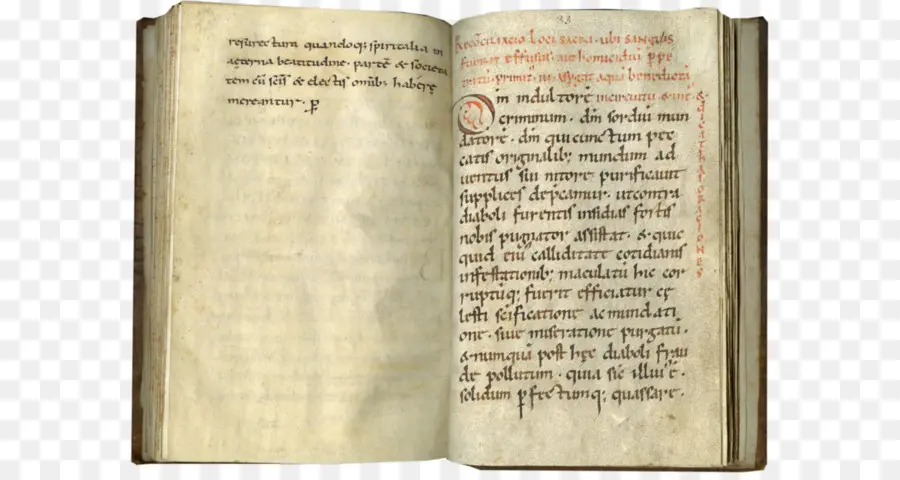 resurrectura quandoq; spiritalia in
aeterna beatitudine. parte & societa
tem cū scīs & electis omīb; habere
mereantur. p̲
33
Reconciliatio loci sacri. ubi sanguis
fuerit effusus. aut homicidiū
primit
aqua benedicti
Dm indultorē &
criminum. dm̄ sordiū mun
datorē. dm̄ qui cunctum pec
catis originalib; mundum ad
ventus sui nitore purificavit
supplices dep̄camur. ut contra
diaboli furentis insidias fortis
nobis pugnator assistat. & quic
quid eius calliditate cotidianis
infestationib; maculatū hic cor
ruptūq; fuerit efficiatur cę
lesti scificatione ac mundati
one. sive miseratione purgatū.
& numquā post hęc diaboli frau
de pollutum. quia sic illui ē.
solidum p̲fectumq; quassare.
dicat has orationes